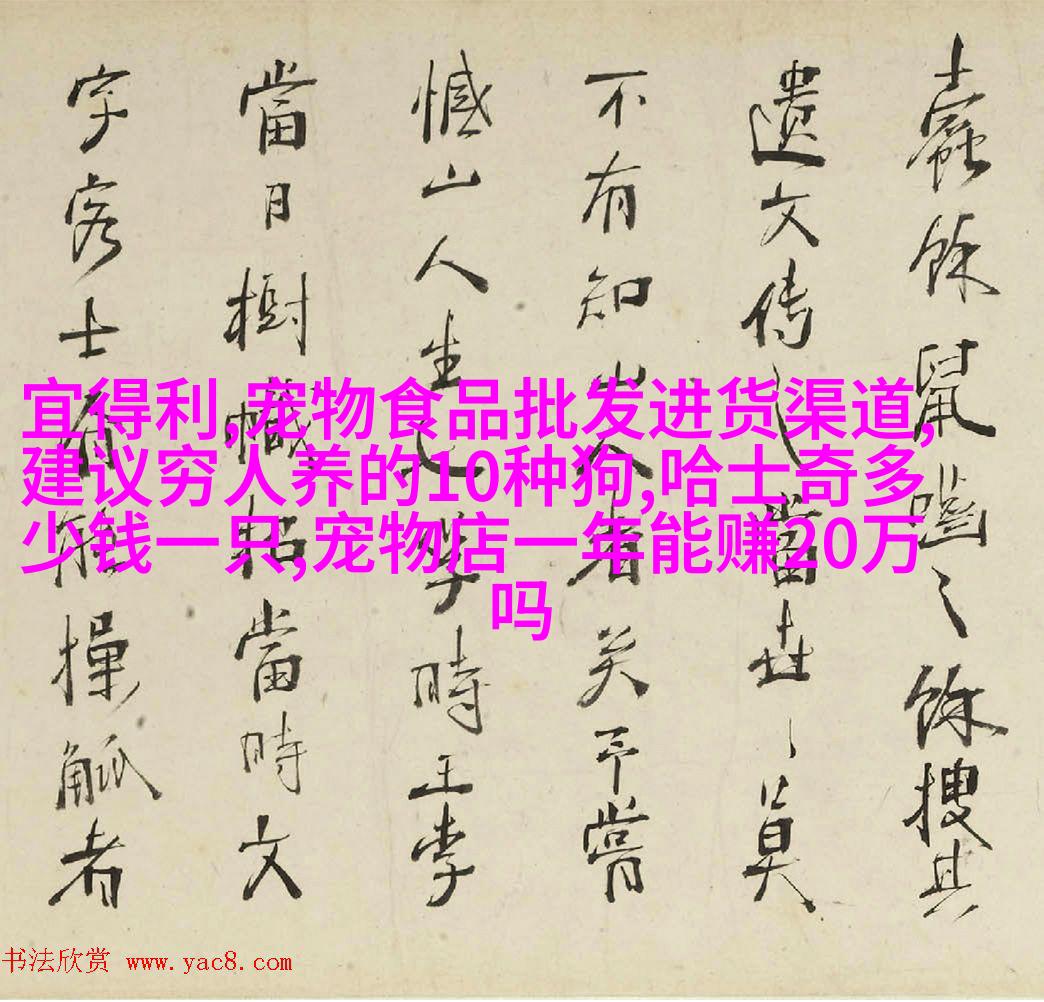 蠹餘鼠齧之餘搜其
遺文传之當世之莫
不有知山人者矣予嘗
憾山人生時王李
當日樹幟招當時文
字客士有能操觚者
宜得利,宠物食品批发进货渠道,
建议穷人养的10种狗,哈士奇多
少钱一只,宠物店一年能赚20万
吗
书法欣赏 www.yac8.com